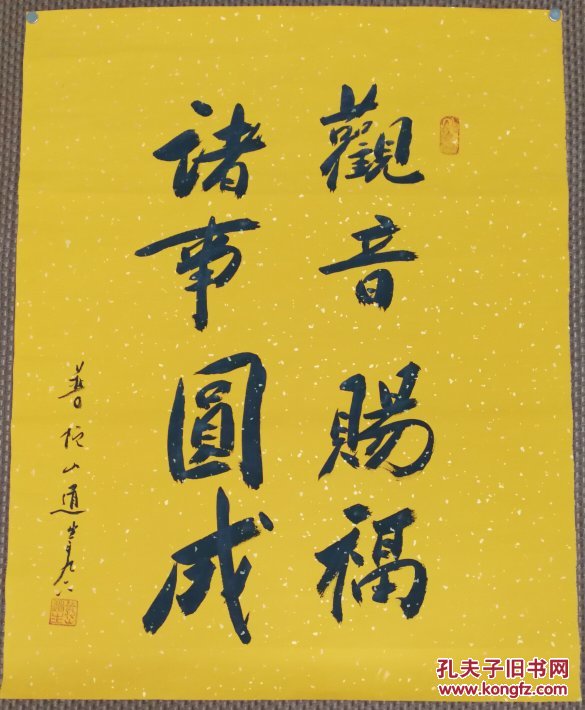 觀音賜福
諸事圓成
普陀山道生年九六
孔夫子旧书网
www.kongfz.com